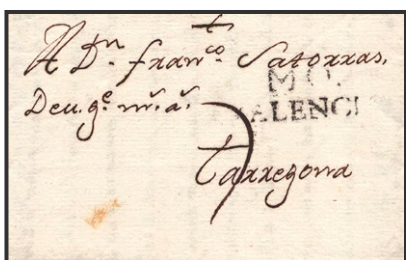 A Dn. Franco. Satorras,
MO.
Deu. ge. ms. as.
VALENCI
Tarregona